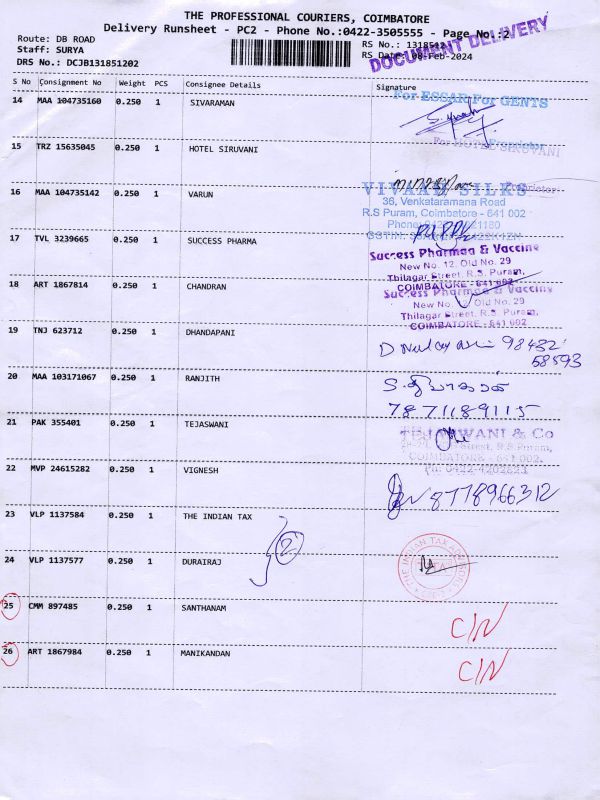 THE PROFESSIONAL COURIERS, COIMBATORE
Delivery Runsheet - PC2 - Phone No.:0422-3505555 - Page No.:2
Route: DB ROAD
RS No.: 1318512
Staff: SURYA
RS Date: 08-Feb-2024
DRS No.: DCJB131851202
DOCUMENT DELIVERY
S No Consignment No Weight PCS Consignee Details Signature
14 MAA 104735160 0.250 1 SIVARAMAN
For ESSAR For GENTS
15 TRZ 15635045 0.250 1 HOTEL SIRUVANI
For HOTEL SIRUVANI
Proprietor
16 MAA 104735142 0.250 1 VARUN
VIVAAM SILKS
36, Venkataramana Road
R.S Puram, Coimbatore - 641 002
17 TVL 3239665 0.250 1 SUCCESS PHARMA
Success Pharmaa & Vaccine
New No. 12, Old No. 29
Thilagar Street, R.S. Puram,
COIMBATORE - 641 002
18 ART 1867814 0.250 1 CHANDRAN
Success Pharmaa & Vaccine
New No. 12, Old No. 29
Thilagar Street, R.S. Puram,
COIMBATORE - 641 002
19 TNJ 623712 0.250 1 DHANDAPANI
98432
58593
20 MAA 103171067 0.250 1 RANJITH
7871189115
21 PAK 355401 0.250 1 TEJASWANI
TEJASWANI & Co
Street, R.S. Puram,
COIMBATORE - 641 002.
22 MVP 24615282 0.250 1 VIGNESH
8778966312
23 VLP 1137584 0.250 1 THE INDIAN TAX
2
24 VLP 1137577 0.250 1 DURAIRAJ
THE INDIAN TAX
25 CMM 897485 0.250 1 SANTHANAM
C/N
26 ART 1867984 0.250 1 MANIKANDAN
C/N